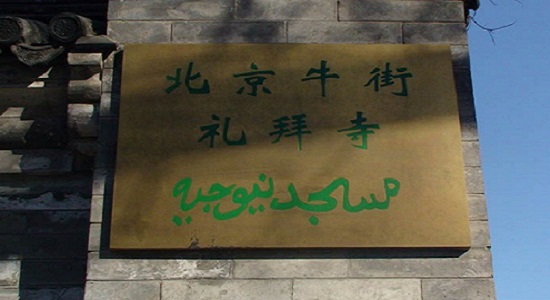 北京牛街
礼拜寺
مسجد نيوجيه